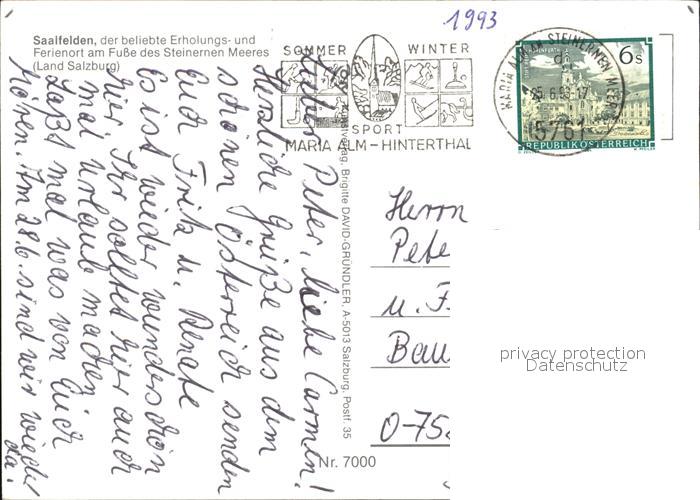 1993
Saalfelden, der beliebte Erholungs- und
Ferienort am Fuße des Steinernen Meeres
(Land Salzburg)
SOMMER WINTER
SPORT
MARIA ALM – HINTERTHAL
MARIA ALM AM STEINERNEN MEER
25.6.93-17
5761
6s
REPUBLIK ÖSTERREICH
Lieber Peter, liebe Carmin!
Herzliche Grüße aus dem
schönen Österreich senden
Euch Fritz u. Renate
Es ist wieder wunderschön
hier. Ihr solltet hier auch
mal Urlaub machen
Laßt mal was von Euch
hören. Am 28.6. sind wir wieder
da!
Kunstverlag, Brigitte DAVID-GRÜNDLER, A-5013 Salzburg, Postf. 35
Herrn
Pete
u. F.
Bau
O-75
Nr. 7000
privacy protection
Datenschutz